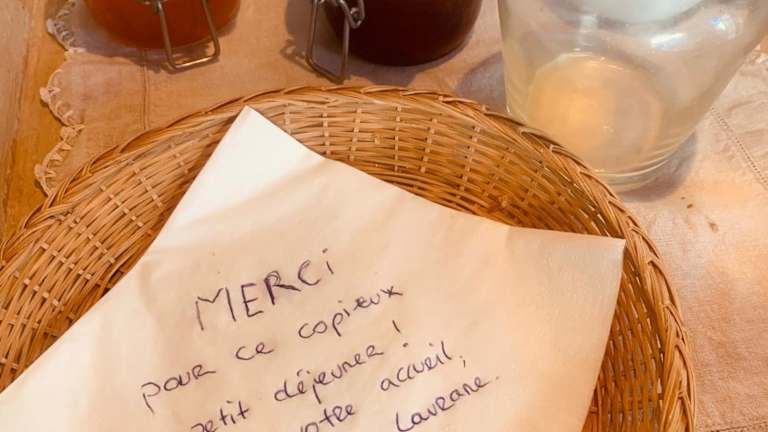 MERCi
pour ce copieux
petit déjeuner !
votre accueil,
Laurane.